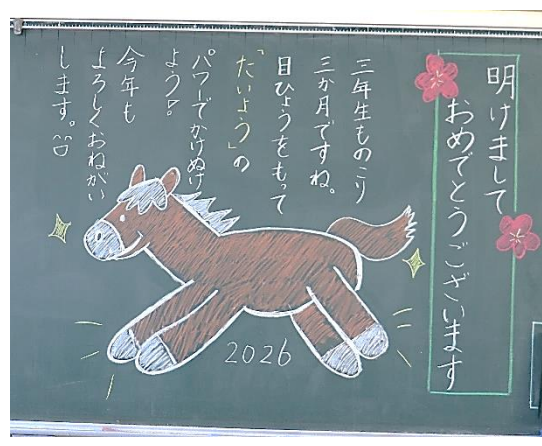 明けまして
おめでとうございます
三年生ものこり
三か月ですね。
目ひょうをもって
「たいよう」の
パワーでかけぬけ
よう！
今年も
よろしくおねがい
します。
2026